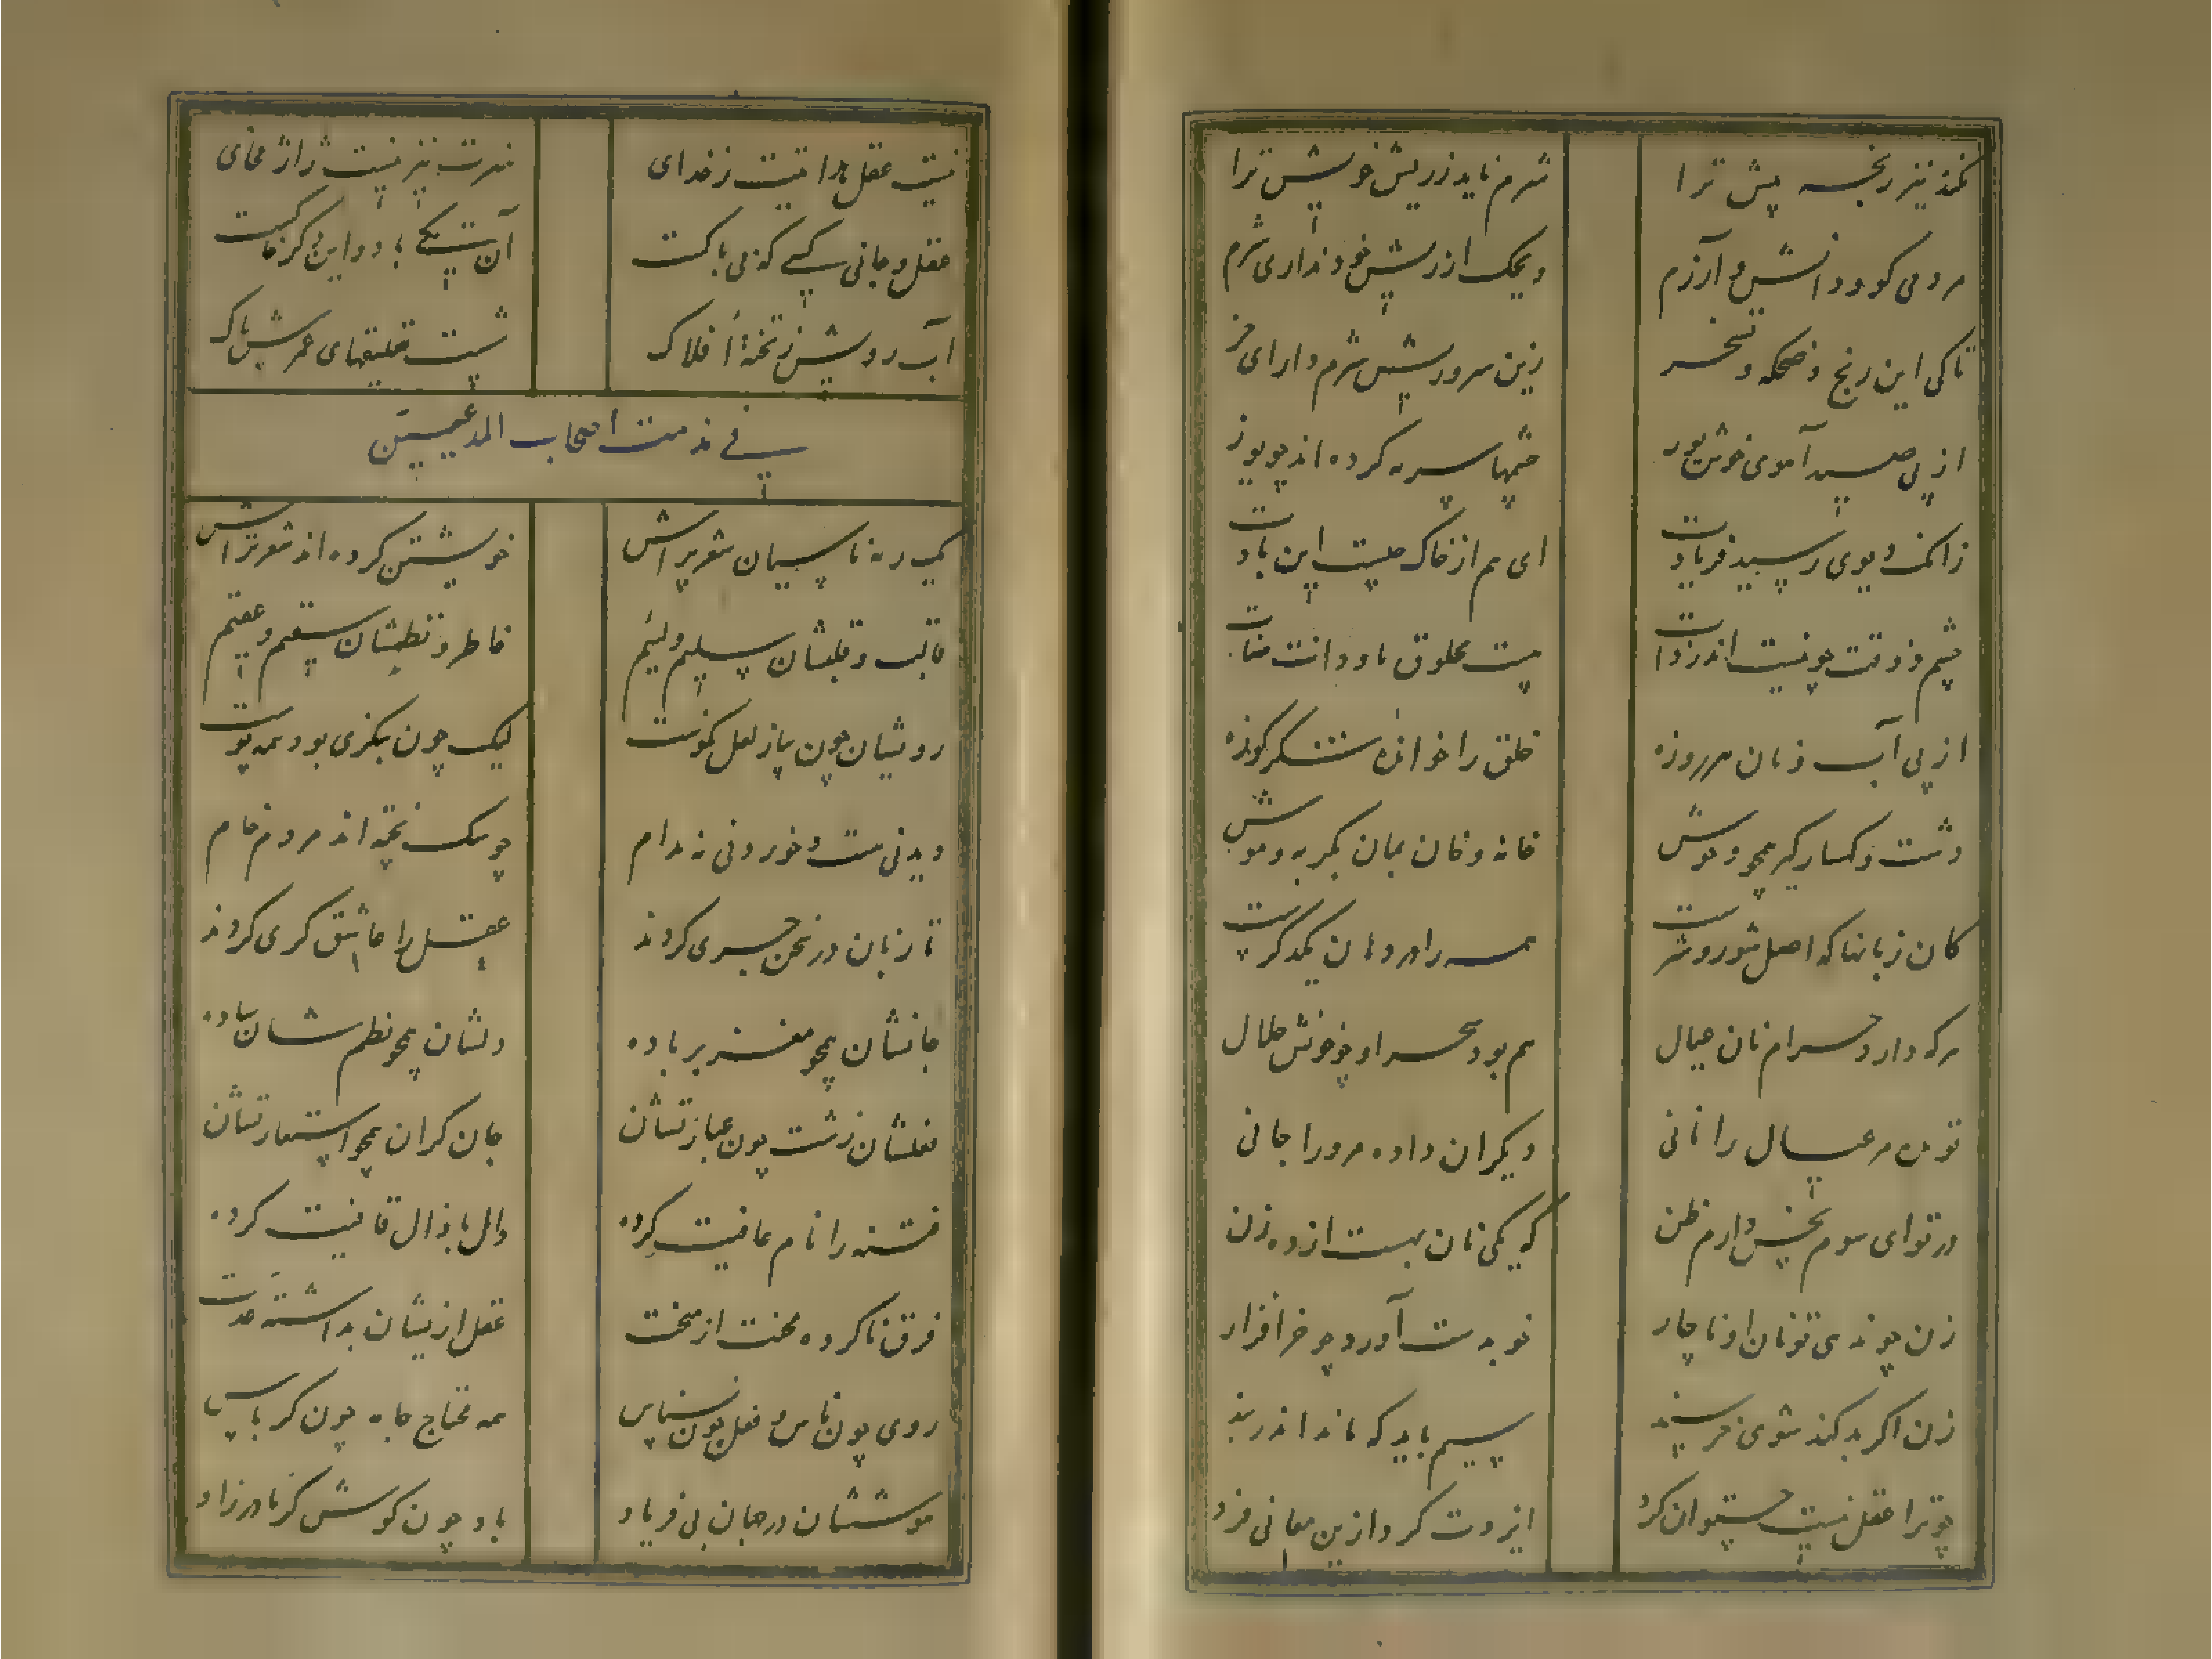 نکند نیز رنجه پیش ترا
شرم ناید ز ریش خویش ترا
مردمی کو و دانش و آزرم
ویحک از ریش خود نداری شرم
تا کی این رنج و ضحکه و تسخر
زین سر و ریش شرم دار ای خر
از پی صید آهوی خوش پور
چشمها سرمه کرده اند چو یوز
ای هم از خاک چیست این بادت
چشم و زوقت چو نیست اندر ذات
چیست مخلوق باد و انت منات
از پی آب و نان هر روزه
خلق را خوانده شکر کوزه
دشت و کهسار گیر همچو وحوش
خانه و خان بمان بگربه و موش
کان زبانها که اصل شور و شرست
همه را در دهان یکدگرست
هرکه دارد حرام نان عیال
هم بود سحر او چو خونش حلال
تو مده مر عیال را نانی
دیگران داده مر ورا جانی
در تو ای سوم بخس دارم ظن
که یکی نان بهست از ده زن
زن چو ندهی تو نان او ناچار
نو بدست آورد چو خر افزار
زن اگر بد کند شوی خرسند
سیم باید که ماند اندر بند
چو ترا عقل نیست چتوان کرد
ایزدت کرد ازین معانی فرد
نیست عقل هدایتت ز خدای
شرمت نیز نیست ژاژ مخای
عقل و جانی کسی که نی پاکست
آن یکی باد و این دگر خاکست
آب رویش ز تخته افلاک
شست تعلیقهای عرش پاک
فی مذمت اصحاب المدعیین
یک رمه ناسپیان شعر پراش
خویشتن کرده اند شعر تراش
قالب و قلبشان سلیم و لئیم
خاطر و نطقشان سقیم و عقیم
رویشان چون پیاز لعل نکوست
لیک چون بنگری بود همه پوست
دیدنی هست و خوردنی نه مدام
چو سک پخته اند مردم خام
تا زبان در سخن جری کردند
عقل را عاشق کری کردند
جانشان همچو مغز پر باده
دلشان همچو نظمشان ساده
فعلشان زشت چون عبارتشان
جان گران همچو استعارتشان
فتنه را نام عافیت کرده
دال با ذال قافیت کرده
فرق ناکرده محنت از منحت
عقل ازیشان بداشته عدت
روی چون ناس و فعل چون نسناس
همه محتاج جامه چون کرباس
موششان در جهان بی فریاد
باد چون گوش کر مادرزاد